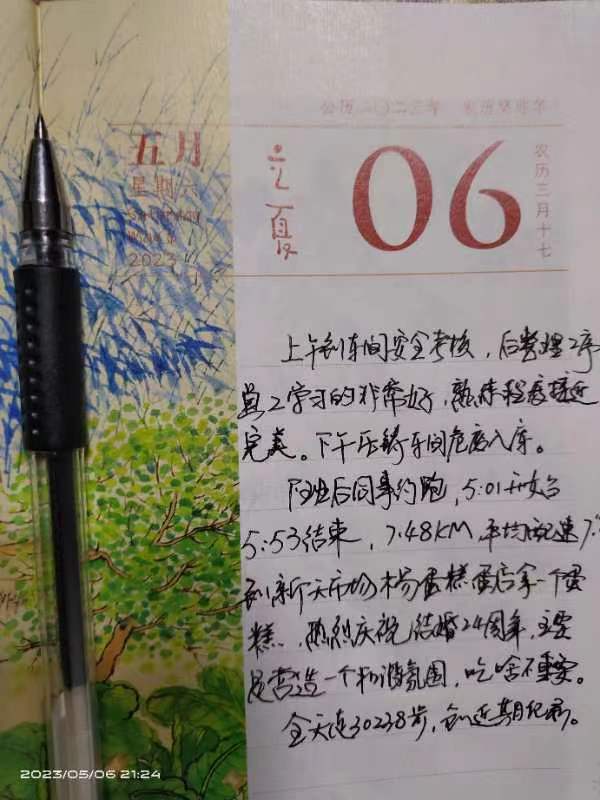 公历二〇二三年 农历癸卯年
五月
星期六
Saturday
May.6
2023
立夏
06
农历三月十七
上午到车间安全考核，后整理工序
员工学习的非常好，熟练程度接近
完美。下午压铸车间危废入库。
下班后同事约跑，5:01开始
5:53结束，7.48KM，平均配速7'
到新天市场杨蛋糕蛋店拿一个蛋
糕，热烈庆祝结婚24周年，主要
是营造一个和谐氛围，吃啥不重要。
全天走30238步，创近期纪录。
2023/05/06 21:24